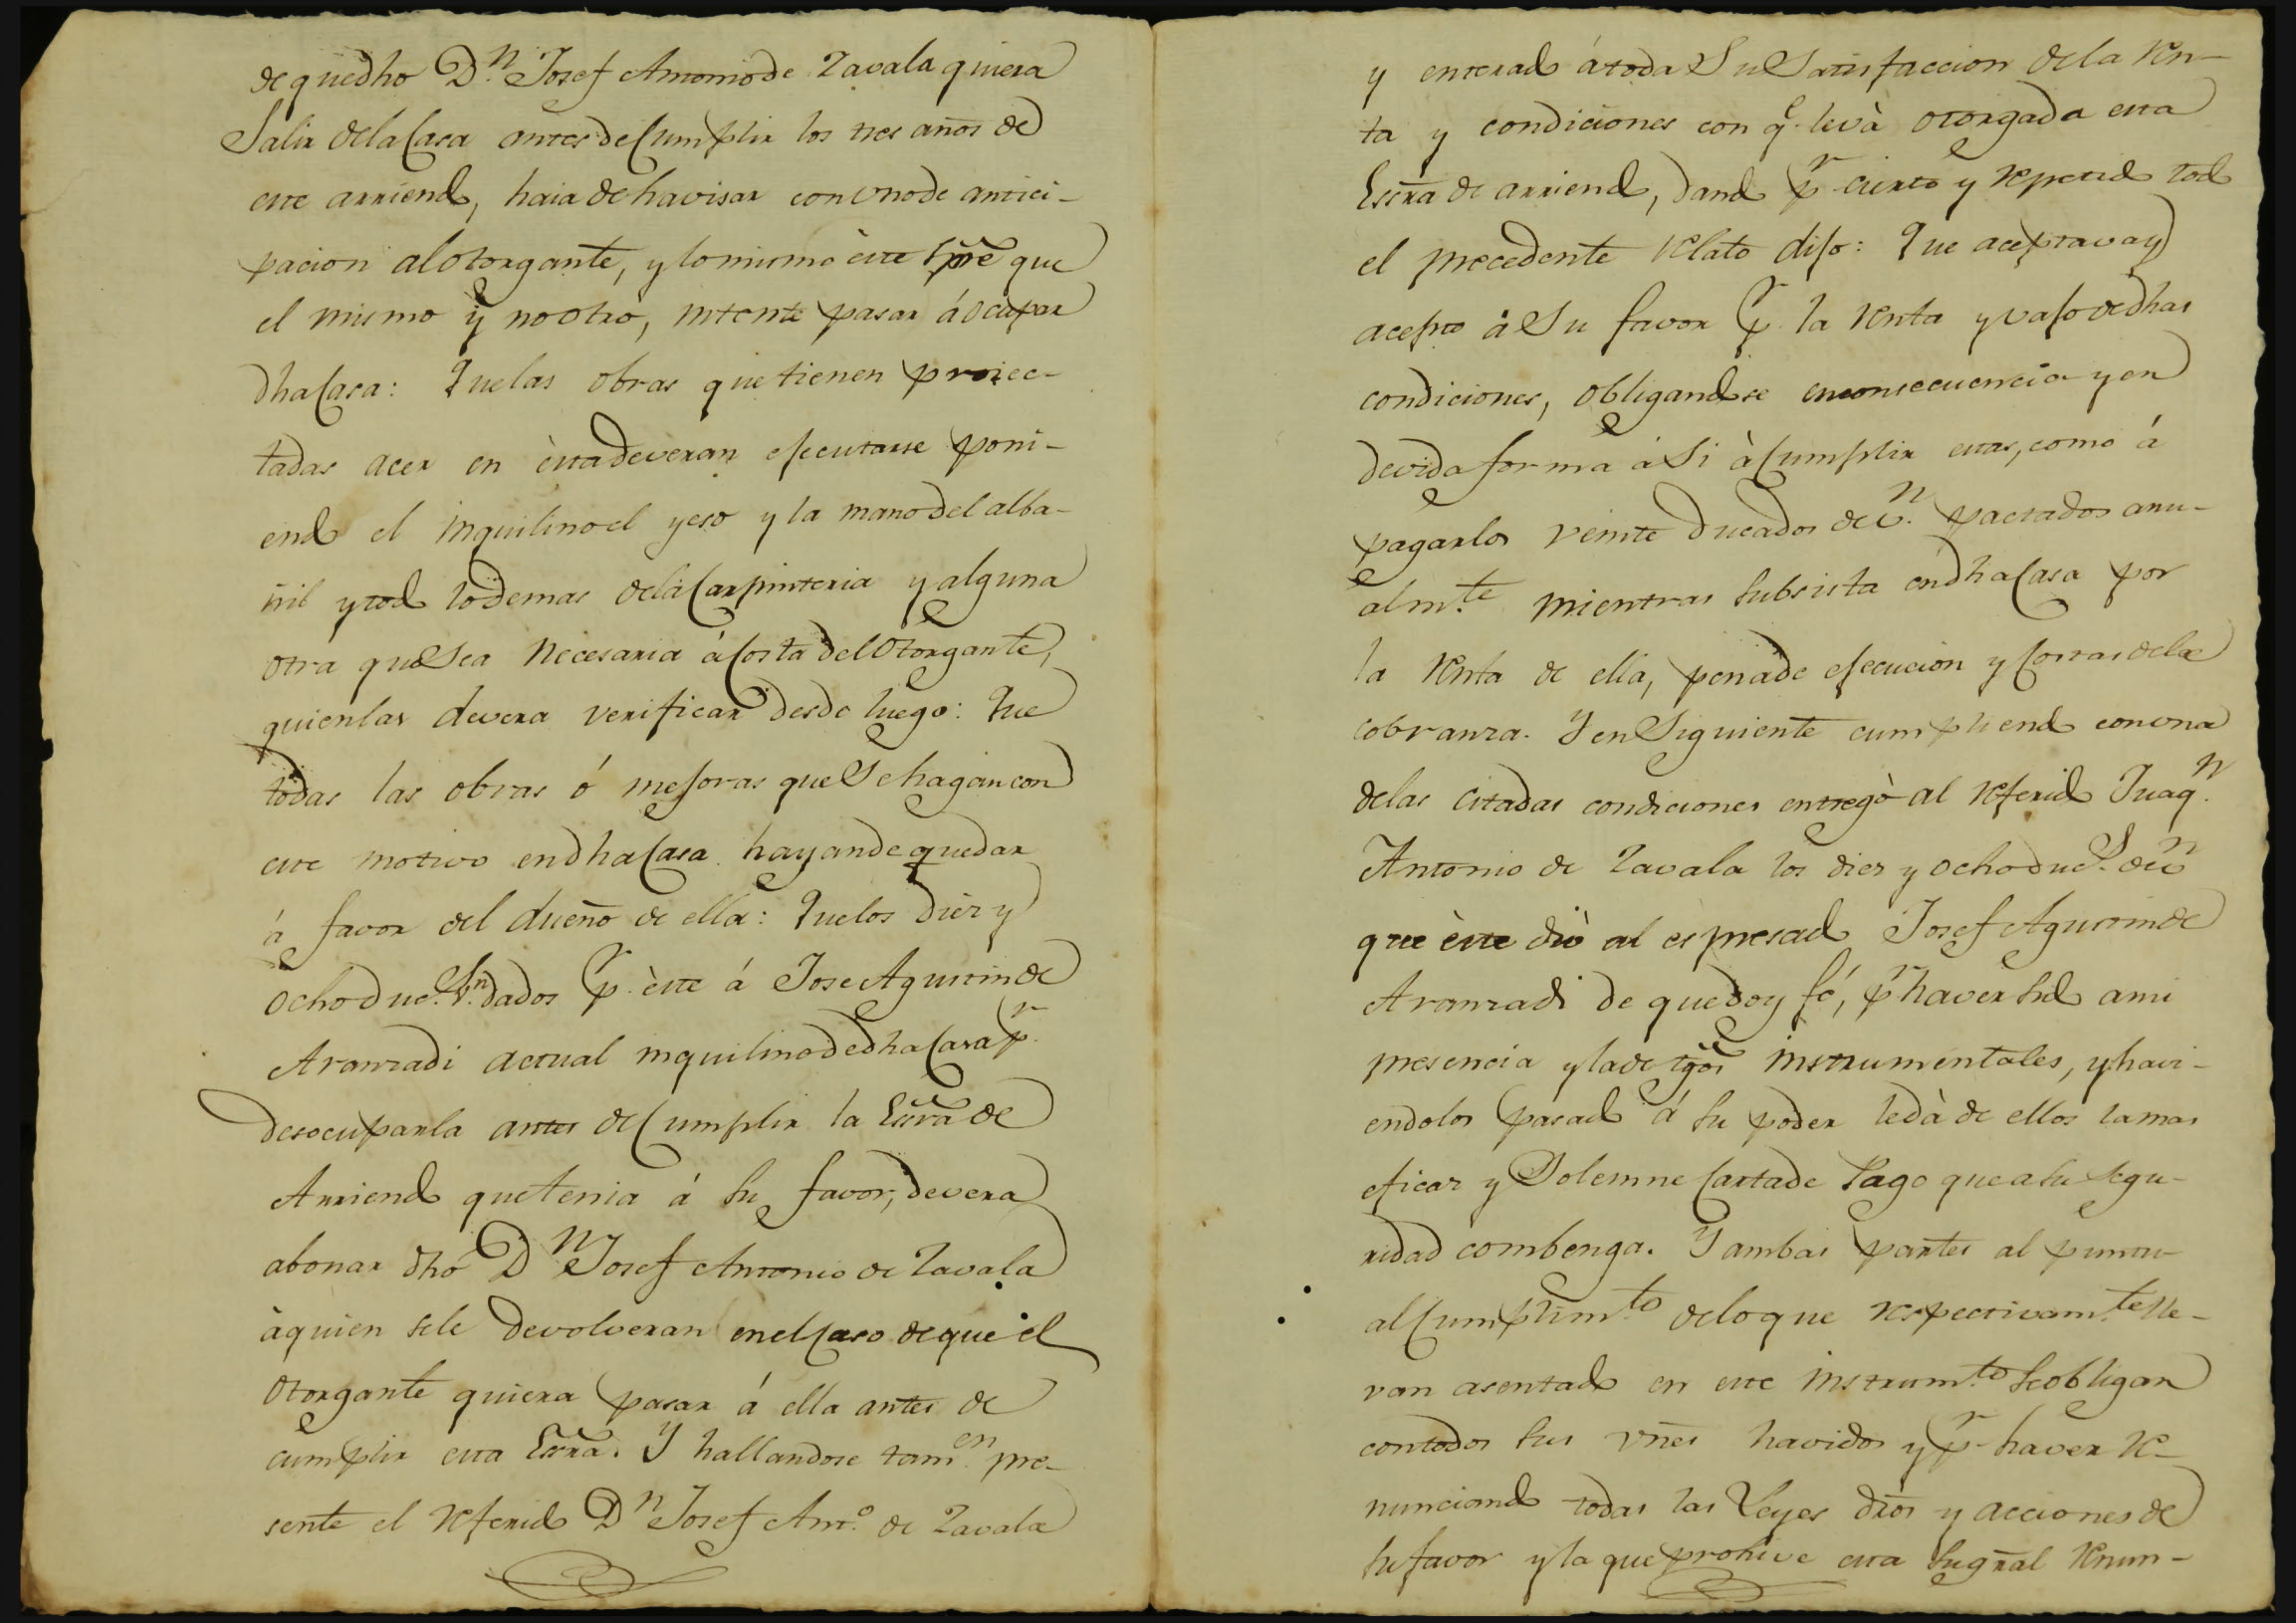 de que dho D.n Josef Antonio de Zavala quiera
Salir de la Casa antes de Cumplir los tres años de
este arriendo, haia de havisar con uno de antici-
pacion al otorgante, y lo mismo èste spre que
el mismo y no otro, intente pasar á ocupar
dha Casa: Que las obras que tienen proiec-
tadas acer en èsta deveran ejecutarse poni-
endo el inquilino el yeso y la mano del alba-
ñil y todo lo demas de la Carpinteria y alguna
otra que Sea necesaria á Costa del Otorgante,
quien las devera verificar desde luego: Que
todas las obras ó mejoras que Se hagan con
este motivo en dha Casa hayan de quedar
á favor del dueño de ella: Que los diez y
ocho duc.s v.n dados p.r èste á Jose Agustin de
Aranzadi actual inquilino de dha Casa p.r
desocuparla antes de Cumplir la Essra de
Arriendo que tenia á su favor, devera
abonar dho D.n Josef Antonio de Zavala
à quien se le devolveran en el Caso de que el
Otorgante quiera pasar á ella antes de
cumplir esta Essra. Y hallandose tam.en pre-
sente el referido D.n Josef Ant.o de Zavala
y enterado á toda Su Satisfaccion de la ren-
ta y condiciones con q.e levà otorgada esta
Essra de arriendo, dando p.r cierto y repetido todo
el precedente relato dijo: Que aceptava y
acepto à Su favor p.r la renta y vajo de dhas
condiciones, obligandose en consecuencia y en
devida forma á Si à Cumplir estas, como á
pagar los veinte ducados de v.n pactados anu-
alm.te mientras subsista en dha Casa por
la renta de ella, pena de ejecucion y Costas de la
cobranza. Y en Siguiente cumpliendo con una
de las citadas condiciones entregò al referido Juaq.n
Antonio de Zavala los diez y ocho duc.s de v.n
que èste diò al espresado Josef Agustin de
Aranzadi de que doy fé, p.r haver sido a mi
presencia y la de tgos instrumentales, y havi-
endolos pasado á su poder le dà de ellos la mas
eficaz y Solemne Carta de Pago que a su segu-
ridad combenga. Y ambas partes al puntu-
al Cumplim.to de lo que respectivam.te lle-
van asentado en este instrum.to se obligan
con todos sus vñes havidos y p.r haver re-
nunciando todas las Leyes dros y acciones de
su favor y la que prohive esta su gral renun-